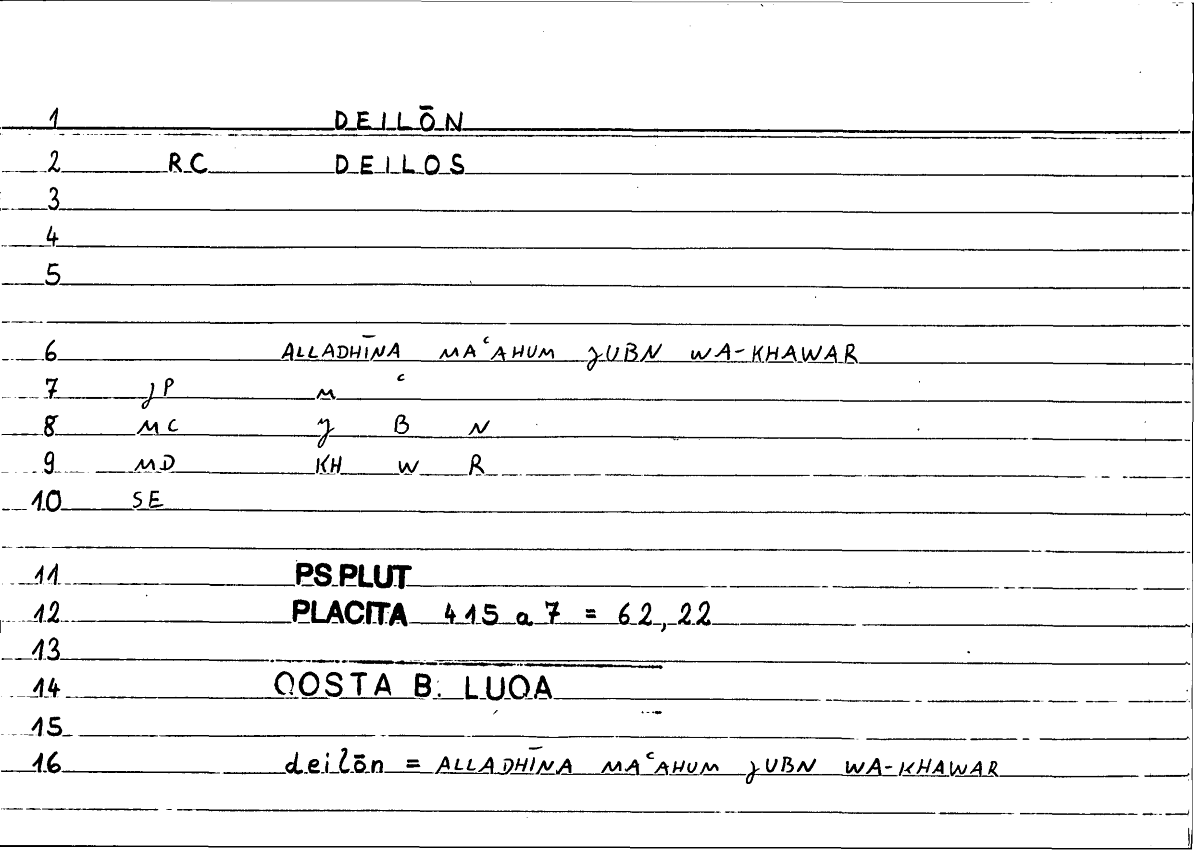 1 DEILŌN
2 RC DEILOS
3
4
5
6 ALLADHĪNA MAʿAHUM JUBN WA-KHAWAR
7 JP M ʿ
8 MC J B N
9 MD KH W R
10 SE
11 PS.PLUT
12 PLACITA 415 a 7 = 62,22
13
14 QOSTA B. LUQA
15
16 deilōn = ALLADHĪNA MAʿAHUM JUBN WA-KHAWAR